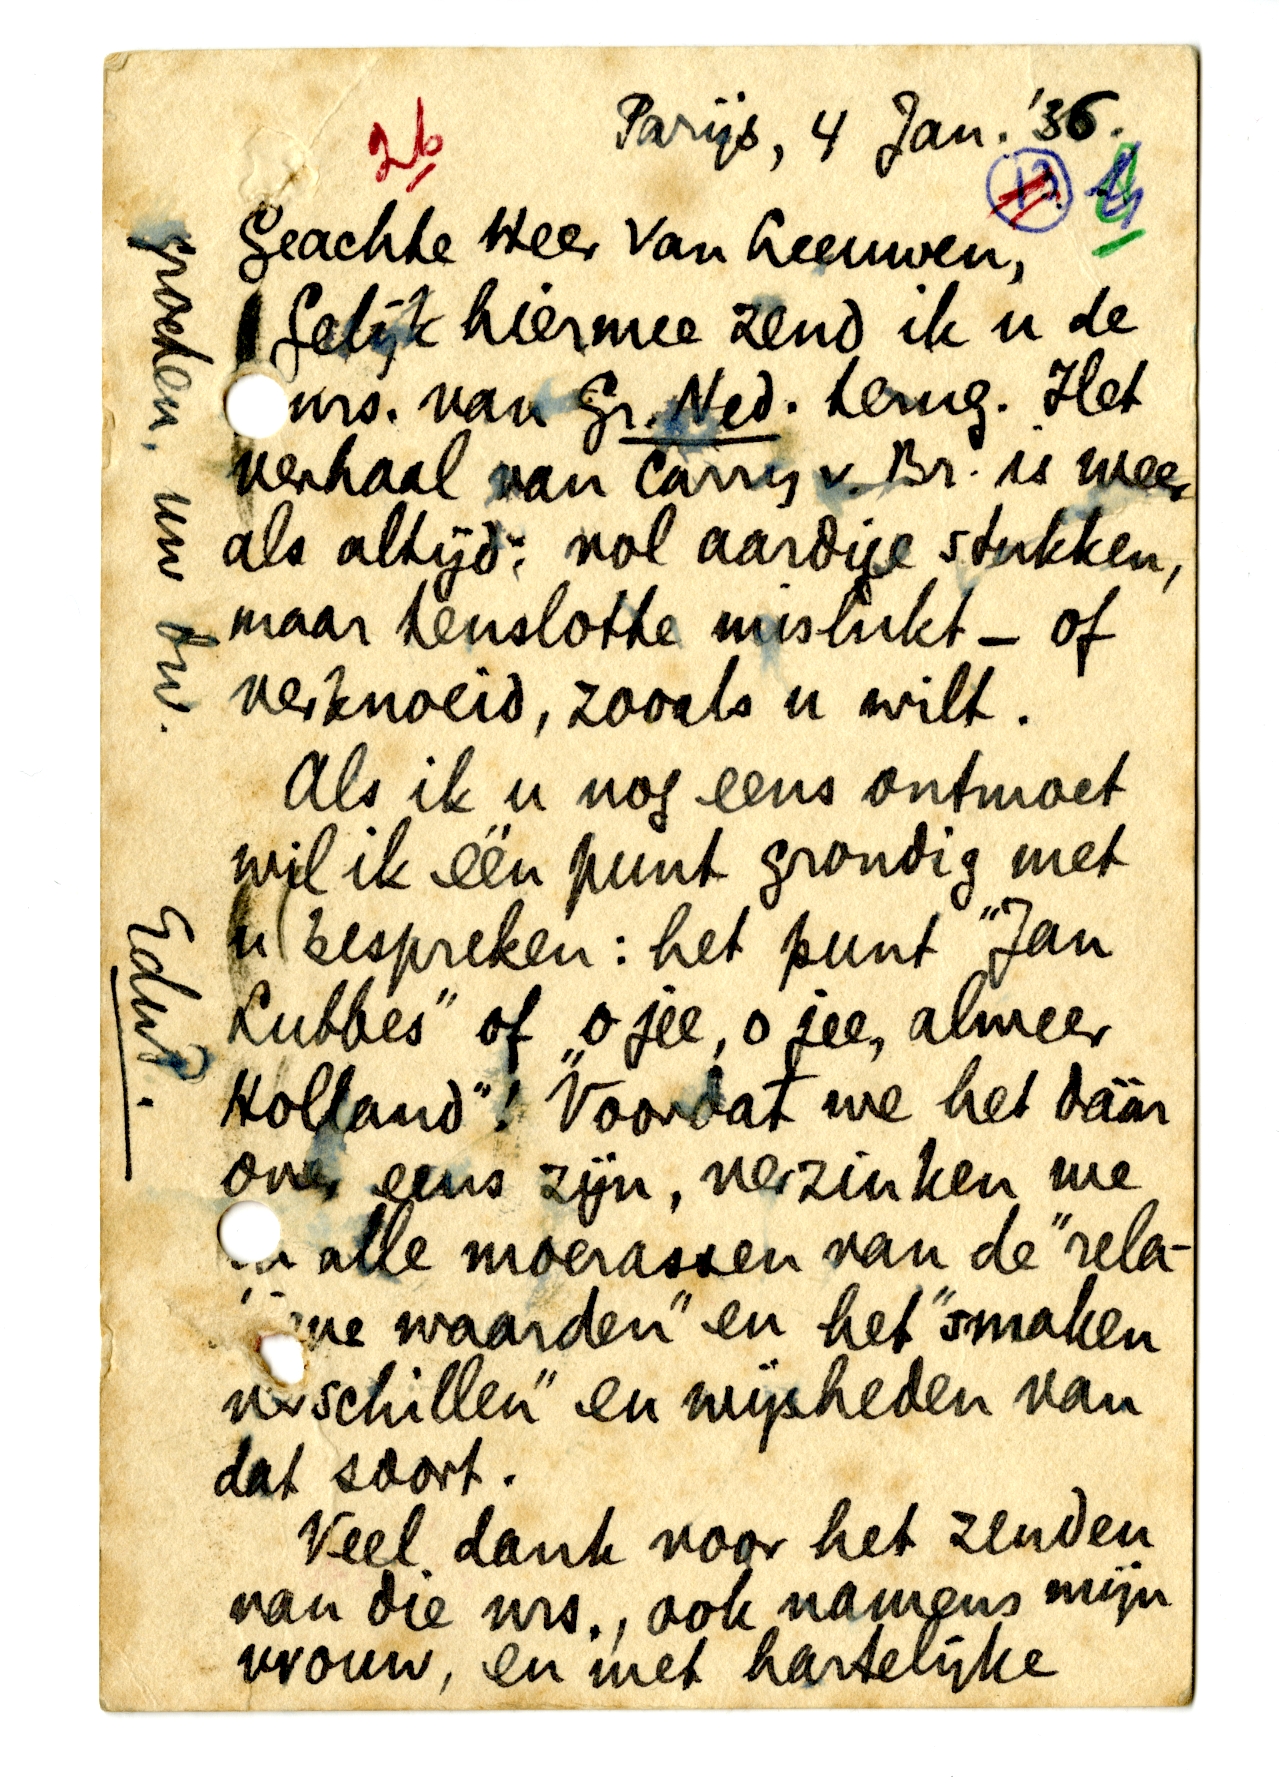 26
Parijs, 4 Jan. '36.
12
Geachte Heer Van Leeuwen,
Gelijk hiermee zend ik u de
nrs. van Gr. Ned. terug. Het
verhaal van Carry v. Br. is weer
als altijd: vol aardige stukken,
maar tenslotte mislukt – of
verknoeid, zooals u wilt.
Als ik u nog eens ontmoet
wil ik één punt grondig met
u bespreken: het punt "Jan
Lubbes" of "o jee, o jee, alweer
Holland"! Voordat we het dáár
over eens zijn, verzinken we
alle moerassen van de "rela-
ve waarden" en het "smaken
verschillen" en wijsheden van
dat soort.
Veel dank voor het zenden
van die nrs., ook namens mijn
vrouw, en met hartelijke
groeten, uw dw.
EduP.